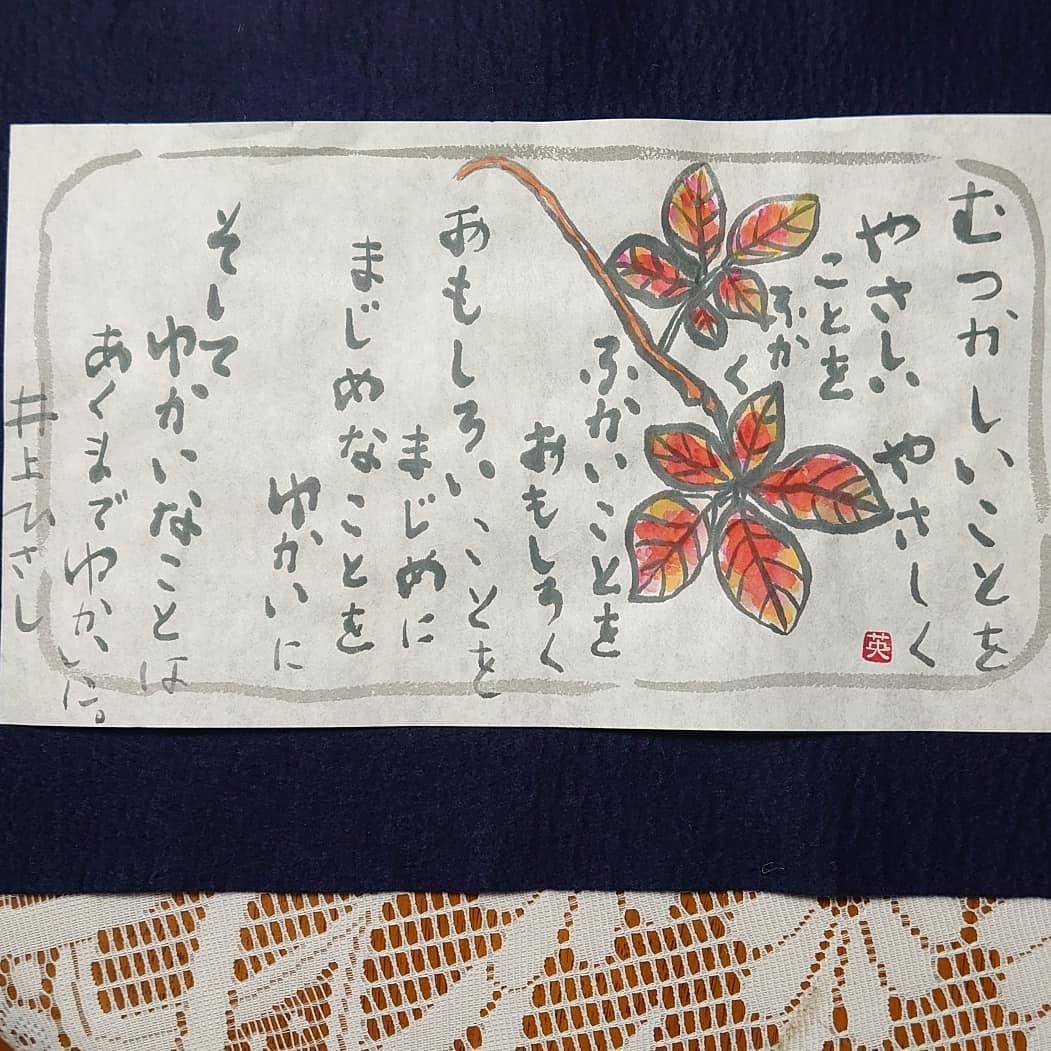 むつかしいことを
やさしく
やさしい
ことを
ふか
く
ふかいことを
おもしろく
おもしろいことを
まじめに
まじめなことを
ゆかいに
そして
ゆかいなことは
あくまでゆかいに。
井上ひさし
英